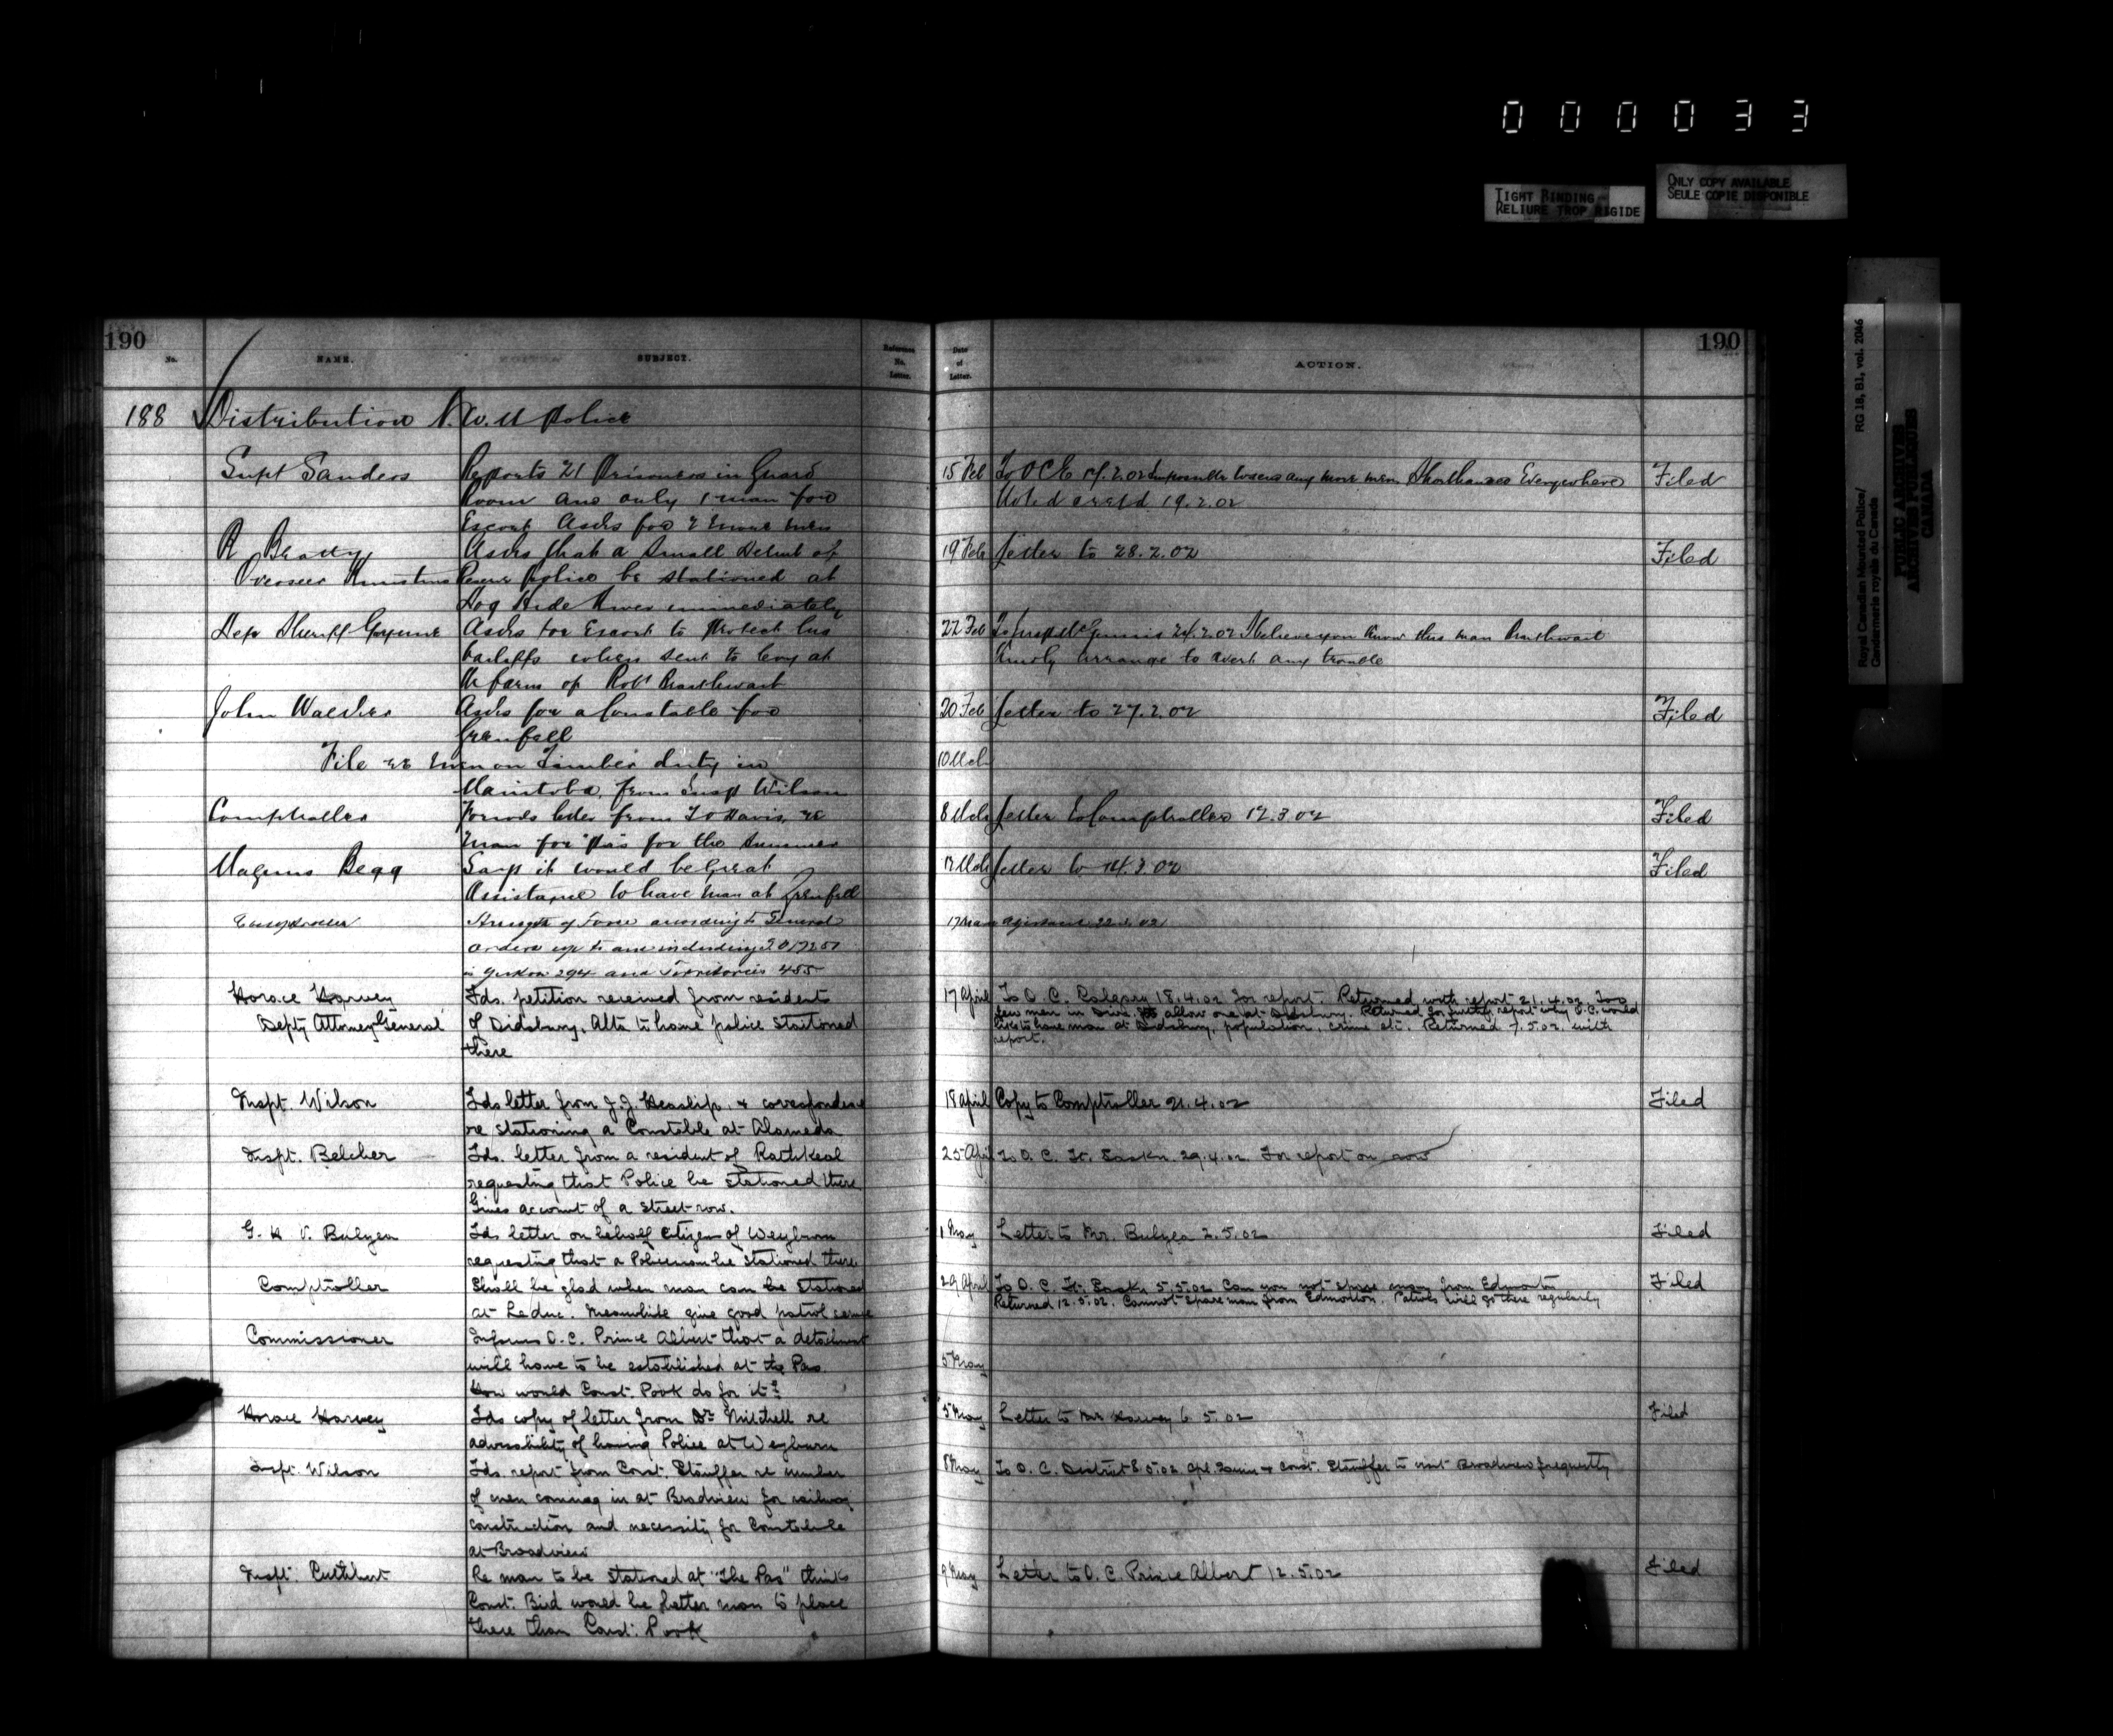 000033
TIGHT BINDING
RELIURE TROP RIGIDE
ONLY COPY AVAILABLE
SEULE COPIE DISPONIBLE
Royal Canadian Mounted Police/ RG 18, B1, vol. 2046
Gendarmerie royale du Canada
PUBLIC ARCHIVES
ARCHIVES PUBLIQUES
CANADA
190
No. NAME. SUBJECT. Reference No. Letter.
Date of Letter. ACTION. 190
188 Distribution N.W.M Police
Supt Sanders Reports 21 Prisoners in Guard 15 Feb To OC E 17.2.02 Impossible to send any more men Everywhere Filed
Room and only 1 man for 19.2.02
Escort Asks for 2 more men
R Beatty Asks that a Small Detmt of 19 Feb Letter to 28.2.02 Filed
Overseer Police be stationed at
Hog Hide River immediately
Dep Sheriff Asks for Escort to Protect his 22 Feb 24.2.02 I believe you know this man
bailiffs when sent to levy at Kindly arrange to avert any trouble
the farm of Robt
John Walker Asks for a Constable for 20 Feb Letter to 27.2.02 Filed
Grenfell
File re men on Timber duty in 10 Mch
Manitoba, from Insp Wilson
Comptroller Forwds letter from T O Davis, re 8 Mch Letter to Comptroller 12.3.02 Filed
man for Pas for the Summer
Magnus Begg Says it would be Great Mch Letter to 14.3.02 Filed
Assistance to have man at Grenfell
Comptroller Strength of Force according to General 17 Mar 22.3.02
orders up to and including
in Yukon 294 and Territories 455
Horace Harvey Fds. petition received from residents 17 April To O. C. Calgary 18.4.02 for report. Returned with report 21.4.02. Too
Depty Attorney General of Didsbury, Alta to have police stationed few men in Divn. to allow one at Didsbury. Returned for further report why O.C. would
there like to have man at Didsbury, population, crime etc. Returned 7.5.02 with
report.
Inspt. Wilson Fds letter from J.J. Heaslip, & correspondence 18 April Copy to Comptroller 21.4.02 Filed
re stationing a Constable at Alameda
Inspt. Belcher Fds. letter from a resident of Rathkeal 25 April To O. C. Ft. Saskn. 29.4.02 For report on row
requesting that Police be stationed there
Gives account of a street row.
G. H V. Bulyea Fds letter on behalf citizens of Weyburn 1 May Letter to Mr. Bulyea 2.5.02 Filed
requesting that a Policeman be stationed there
Comptroller Shall be glad when man can be stationed 29 April To O. C. Ft. Saskn 5.5.02 Can you not spare man from Edmonton Filed
at Leduc. Meanwhile give good patrol service Returned 12.5.02. Cannot spare man from Edmonton. Patrols will go there regularly
Commissioner Informs O.C. Prince Albert that a detachment
will have to be established at the Pas 5 May
How would Const. Pook do for it?
Horace Harvey Fds copy of letter from Dr Mitchell re 5 May Letter to Mr Harvey 6.5.02 Filed
advisability of having Police at Weyburn
Inspt. Wilson Fds. report from Const. Stauffer re number 8 May To O. C. District 8.5.02 & Const. Stauffer to visit Broadview frequently
of men coming in at Broadview for railway
construction and necessity for Constable
at Broadview
Inspt. Cuthbert Re man to be stationed at "The Pas" thinks 9 May Letter to O. C. Prince Albert 12.5.02 Filed
Const. Bird would be better man to place
there than Const. Pook